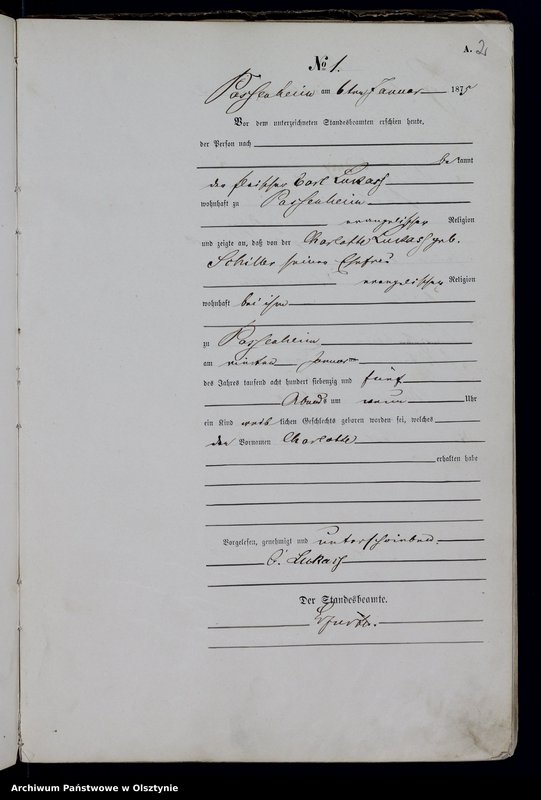 A. 2
No 1.
Passenheim am 6ten Januar 1875
Vor dem unterzeichneten Standesbeamten erschien heute,
der Person nach
bekannt
der Fleischer Carl Lukasch
wohnhaft zu Passenheim
evangelischer Religion
und zeigte an, daß von der Charlotte Lukasch geb.
Schiller seiner Ehefrau
evangelischer Religion
wohnhaft bei ihm
zu Passenheim
am vierten Januar
des Jahres tausend acht hundert siebenzig und fünf
Abends um neun Uhr
ein Kind weiblichen Geschlechts geboren worden sei, welches
den Vornamen Charlotte
erhalten habe
Vorgelesen, genehmigt und unterschrieben.
C. Lukasch
Der Standesbeamte.
Archiwum Państwowe w Olsztynie